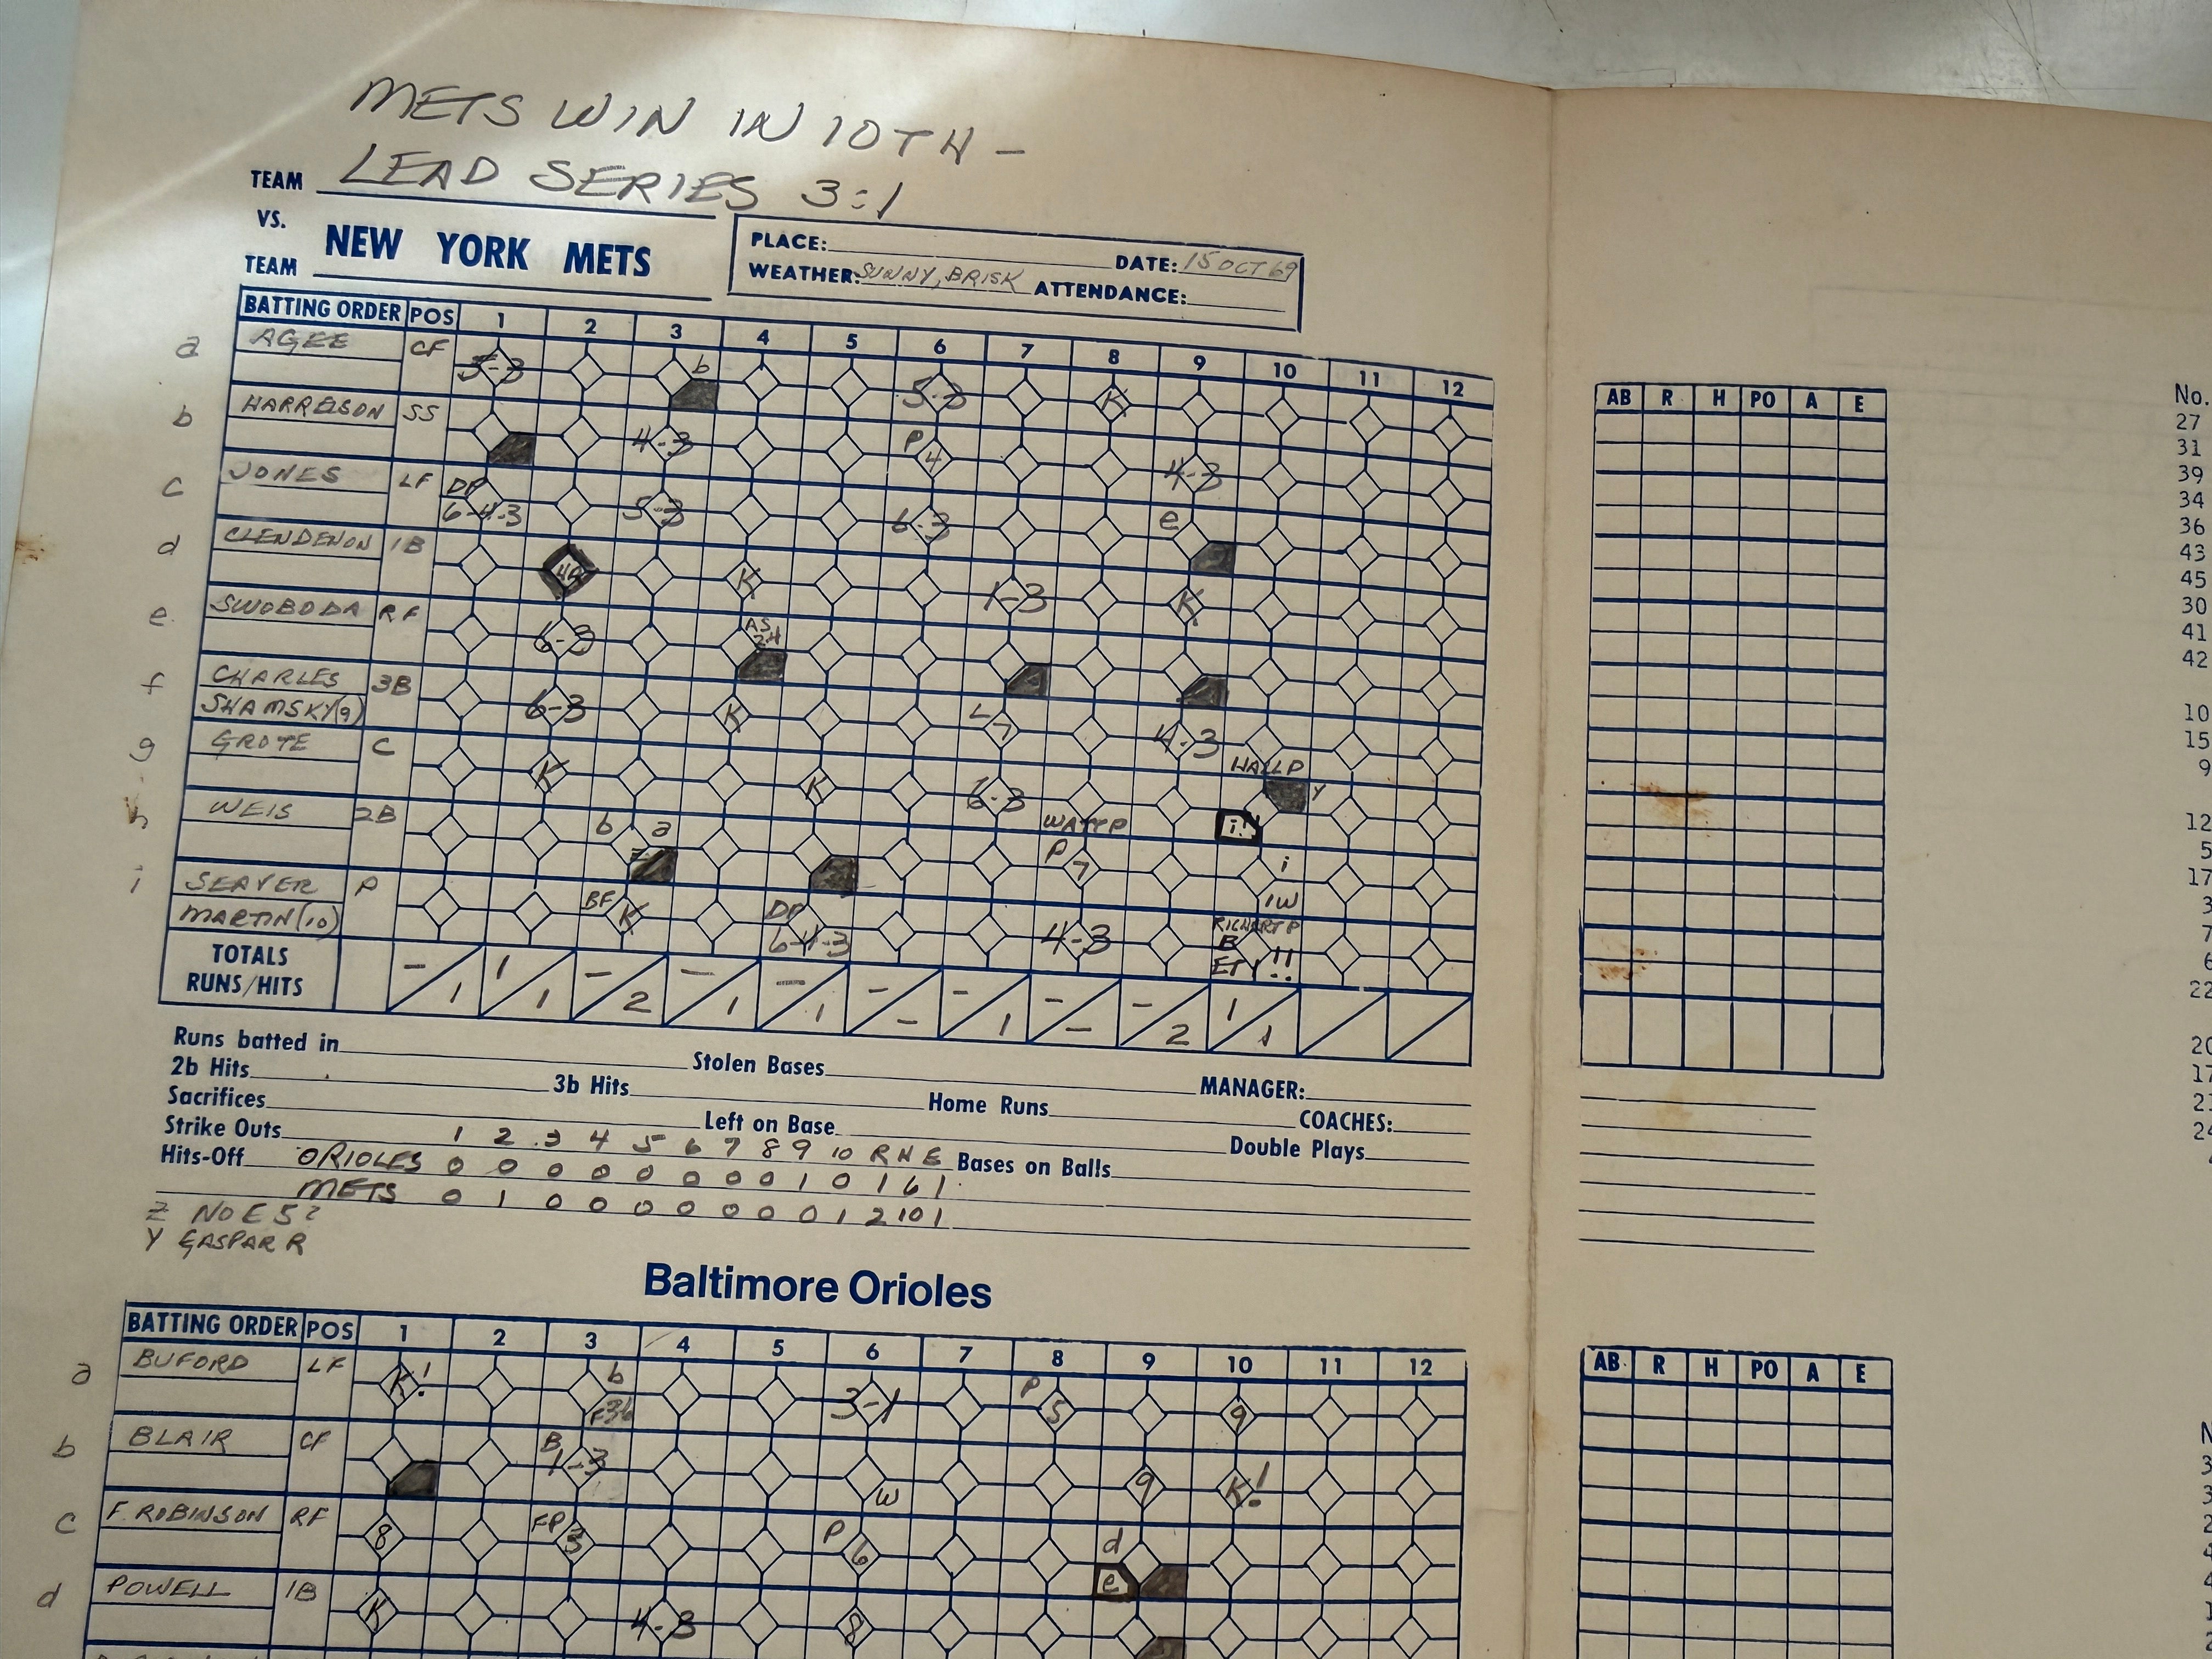 METS WIN IN 10TH -
LEAD SERIES 3:1
TEAM
VS.
NEW YORK METS
TEAM
PLACE: DATE: 15 OCT 69
WEATHER: SUNNY, BRISK ATTENDANCE:
BATTING ORDER POS 1 2 3 4 5 6 7 8 9 10 11 12
a AGEE CF 5-3 b 5-3 K
b HARRELSON SS 4-3 P 4 4-3
c JONES LF DP 6-4-3 5-3 6-3 e
d CLENDENON 1B K 1-3 K
e SWOBODA RF 6-3 AS 24
f CHARLES 3B 6-3 K L 7 4-3
SHAMSKY(9)
g GROTE C K K 6-3 HALL P Y i
h WEIS 2B b a Z WATT P P 7 i IW
i SEAVER P BF K DP 6-4-3 4-3 RICHERT P B E1 !!
MARTIN(10)
TOTALS
RUNS/HITS -/1 1/1 -/2 -/1 -/1 -/- -/1 -/- -/2 1/1
Runs batted in Stolen Bases MANAGER:
2b Hits 3b Hits Home Runs COACHES:
Sacrifices Left on Base Double Plays
Strike Outs 1 2 3 4 5 6 7 8 9 10 R H E Bases on Balls
Hits-Off ORIOLES 0 0 0 0 0 0 0 0 1 0 1 6 1
METS 0 1 0 0 0 0 0 0 0 1 2 10 1
Z NO E5?
Y GASPAR R
Baltimore Orioles
BATTING ORDER POS 1 2 3 4 5 6 7 8 9 10 11 12
a BUFORD LF K! b 3-1 P 5 9
b BLAIR CF B 1-3 W 9 K!
c F. ROBINSON RF 8 FP 3 P 6 d e
d POWELL 1B K 4-3 8
AB R H PO A E
AB R H PO A E
No.
27
31
39
34
36
43
45
30
41
42
10
15
9
12
5
17
3
7
6
22